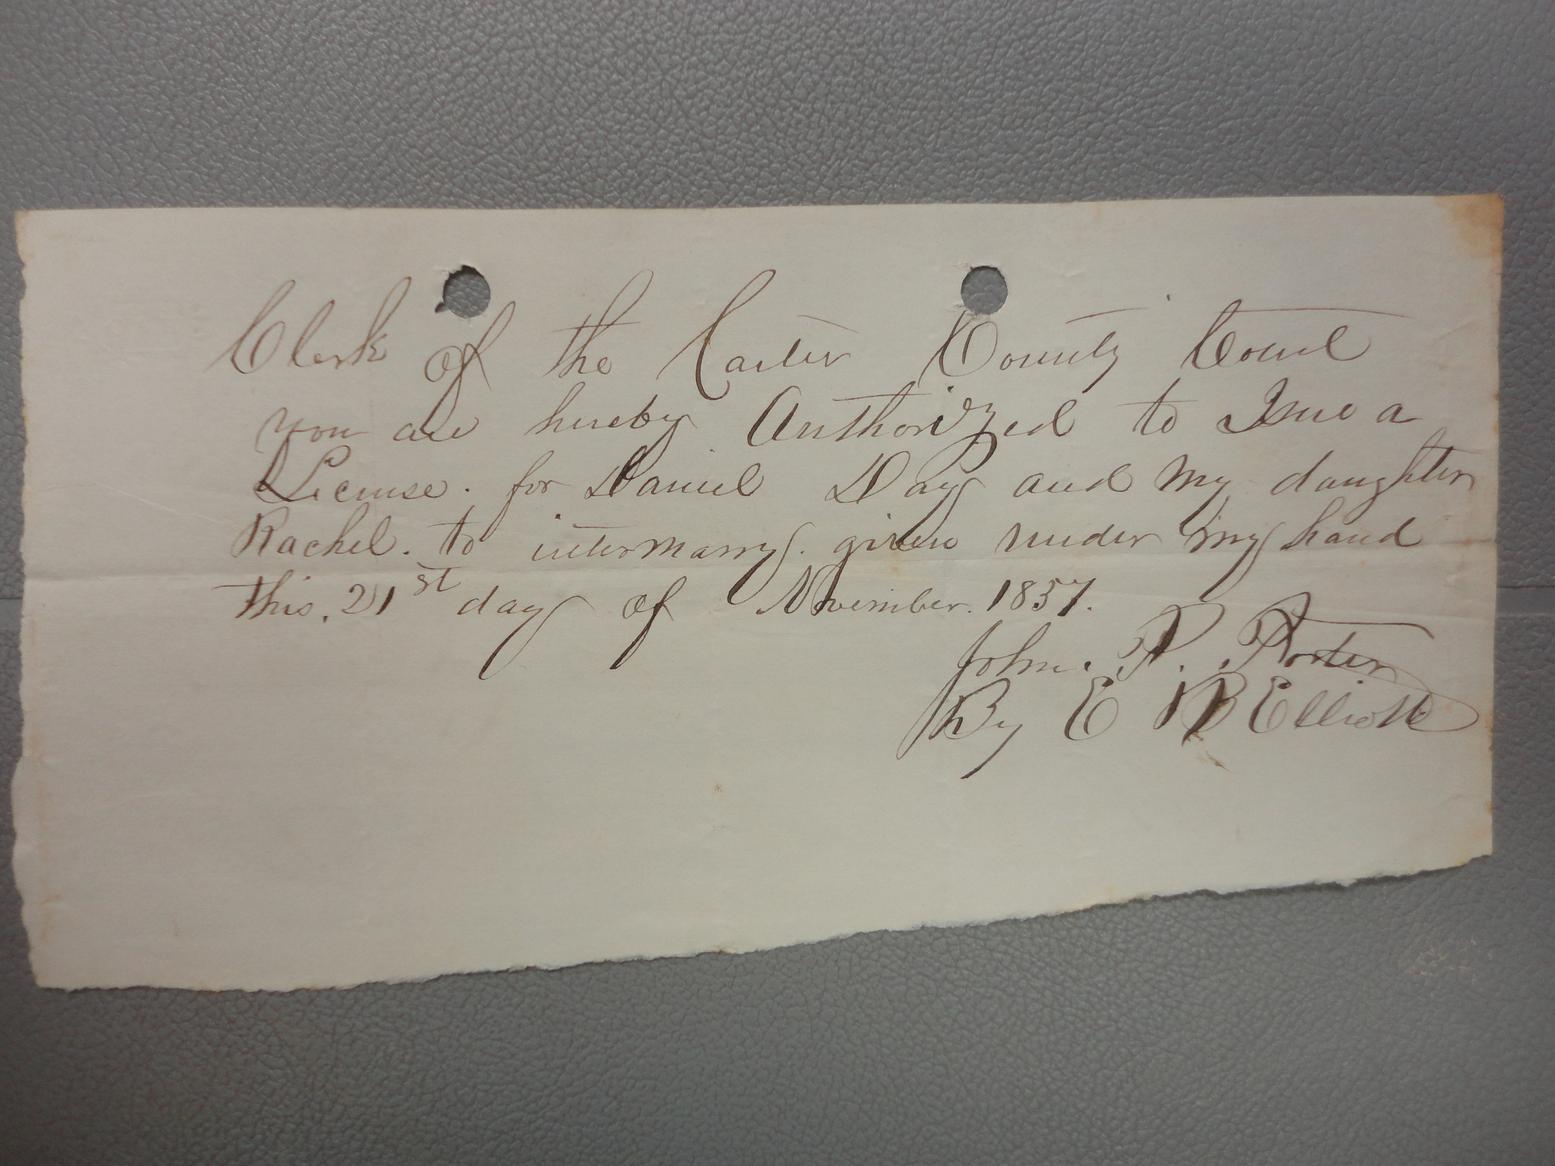 Clerk of the Carter County Court
you are hereby Authorized to Issue a
License. for Daniel Day and My daughter
Rachel. to intermarry. given under my hand
this. 21st day of November. 1857.
John. P. Porter
By E B Elliott